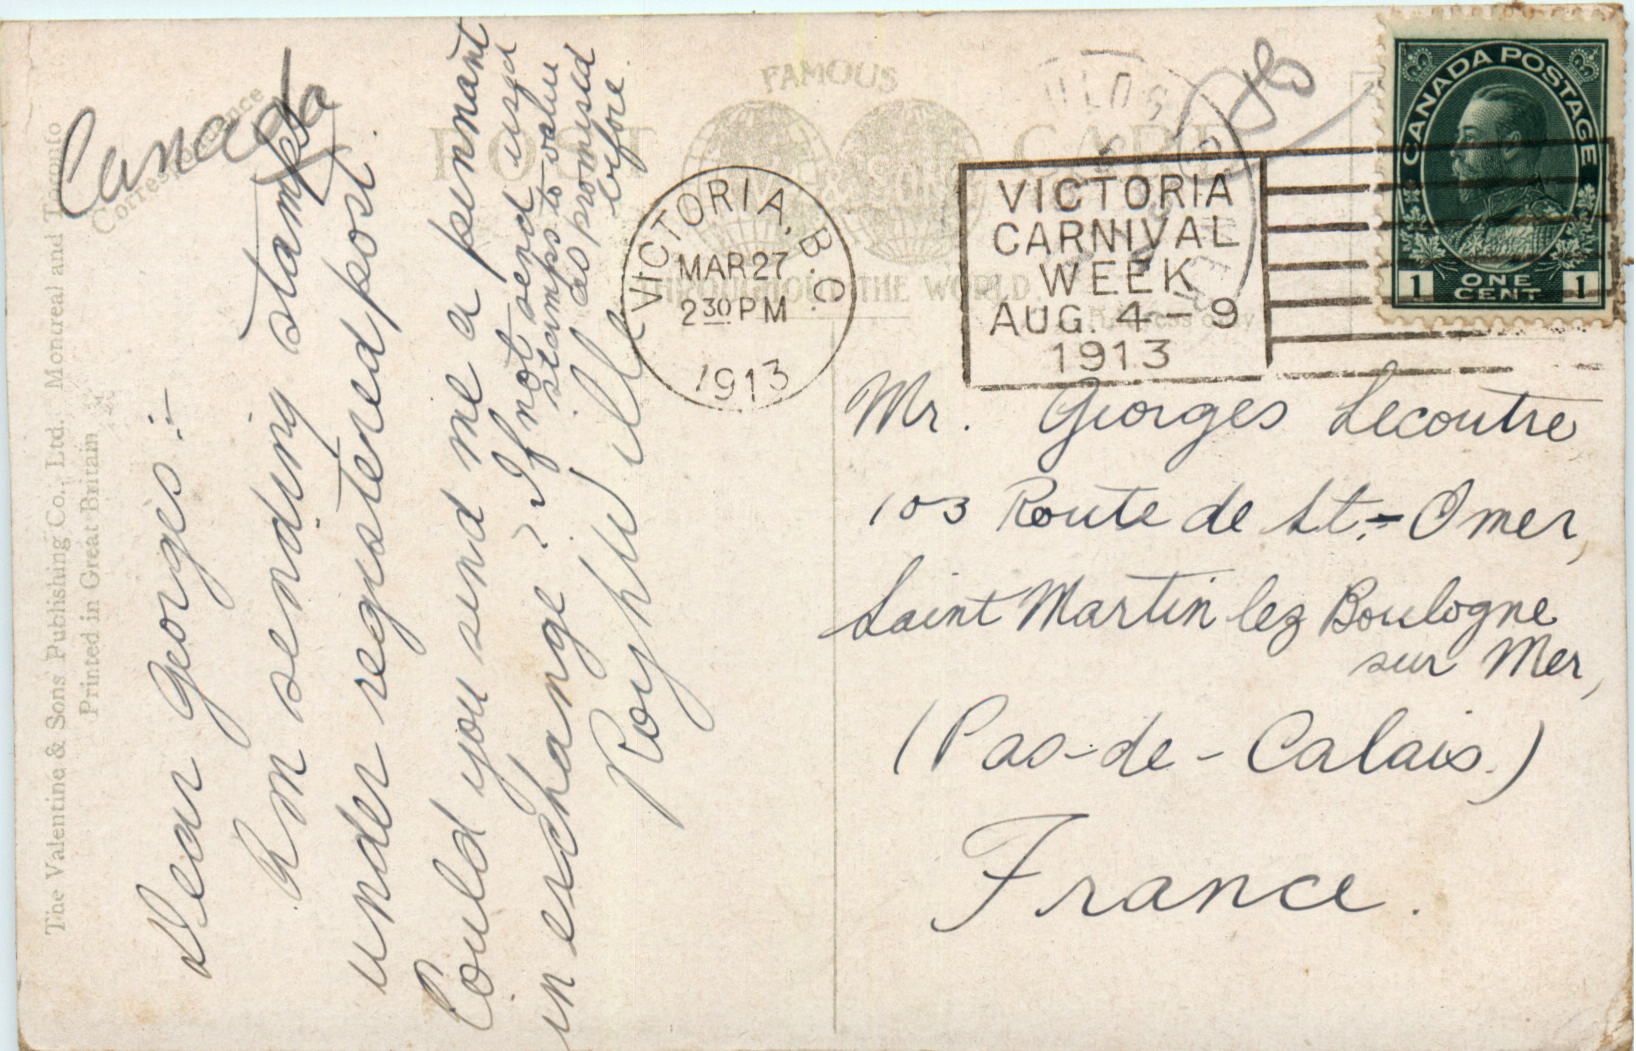 Canada
Correspondence
The Valentine & Sons Publishing Co., Ltd. Montreal and Toronto
Printed in Great Britain
Dear Georges :-
Am sending stamps
under registered post.
Could you send me a pennant
in exchange? If not send used
stamps to value
as promised
before.
Roy
FAMOUS
POST CARD
THROUGHOUT THE WORLD
VICTORIA, B.C.
MAR 27
2 30 PM
1913
VICTORIA
CARNIVAL
WEEK
AUG. 4-9
1913
CANADA POSTAGE
1 ONE CENT 1
Mr. Georges Lecoutre
103 Route de St.-Omer,
Saint Martin lez Boulogne
sur Mer,
(Pas-de-Calais.)
France.